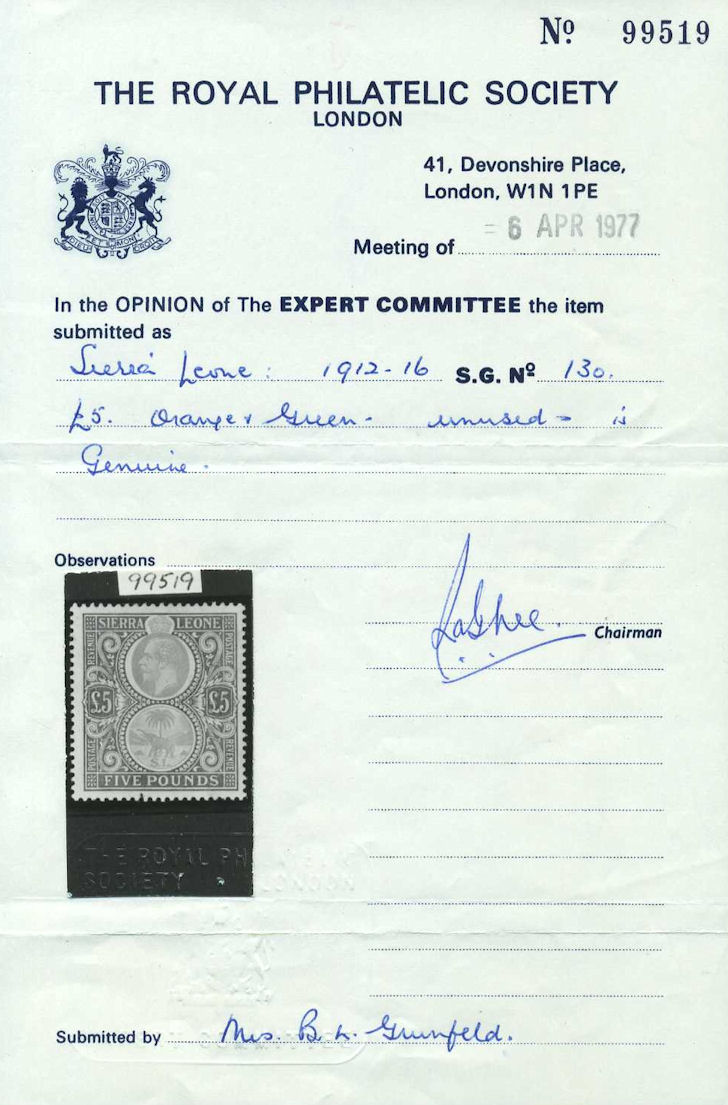 Nº 99519
THE ROYAL PHILATELIC SOCIETY
LONDON
41, Devonshire Place,
London, W1N 1PE
= 6 APR 1977
Meeting of
In the OPINION of The EXPERT COMMITTEE the item
submitted as
Sierra Leone: 1912-16 S.G. Nº 130.
£5. Orange & Green - unused - is
Genuine.
Observations
99519
SIERRA LEONE
POSTAGE REVENUE
£5 £5
POSTAGE REVENUE
FIVE POUNDS
THE ROYAL PH
SOCIETY
LONDON
Chairman
Submitted by Mrs. B. L. Grunfeld.